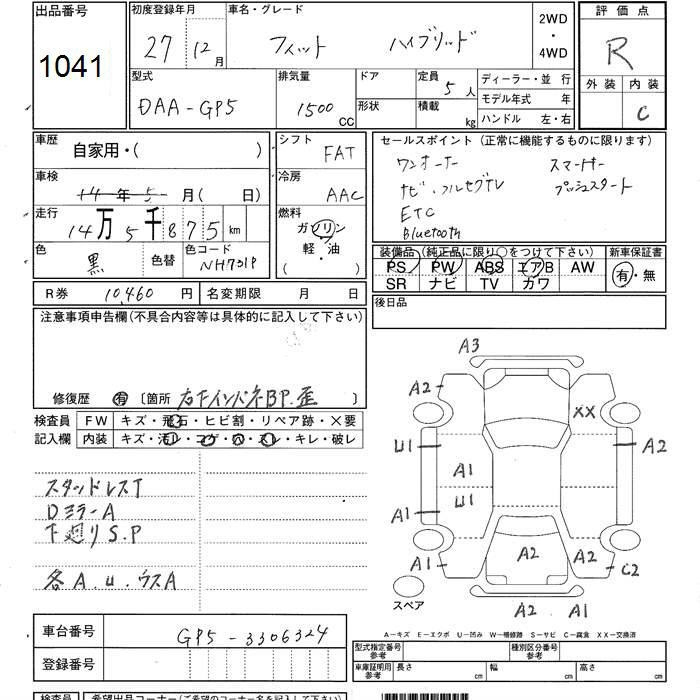 出品番号
1041
初度登録年月
27 12月
車名・グレード
フィット ハイブリッド
2WD
・
4WD
評価点
R
外装 内装
C
型式
DAA-GP5
排気量
1500 CC
ドア
形状
定員 5 人
積載 kg
ディーラー・並 行
モデル年式 年
ハンドル 左・右
車歴
自家用・( )
車検
14 年 5 月( 日)
走行
14万5千875 km
色
黒
色替
色コード
NH731P
シフト
FAT
冷房
AAC
燃料
ガソリン
軽・油
( )
セールスポイント (正常に機能するものに限ります)
ワンオーナー スマートキー
ナビ・フルセグTV プッシュスタート
ETC
Bluetooth
装備品 (純正品に限り○をつけて下さい)
PS PW ABS エアB AW
SR ナビ TV カワ
新車保証書
有・無
後日品
R券 10,460 円 名変期限 月 日
注意事項申告欄(不具合内容等は具体的に記入して下さい)
修復歴 有 〔箇所 右下インパネBP.歪 〕
検査員
記入欄
FW キズ・飛石・ヒビ割・リペア跡・×要
内装 キズ・汚レ・コゲ・穴・スレ・キレ・破レ
スタッドレスT
DミラーA
下廻りS.P
各A.u.ウスA
A3
A2
XX
U1
A2
A1
U1
A1
A1
A2
A2
C2
スペア
A2
A1
A-キズ E-エクボ U-凹み W-補修跡 S-サビ C-腐食 XX-交換済
車台番号
GP5-3306324
登録番号
型式指定番号
参考
種別区分番号
参考
車庫証明用
参考
長さ cm 幅 cm 高さ cm
検査員 希望出品コーナー(ご希望のコーナー名を記入して下さい)